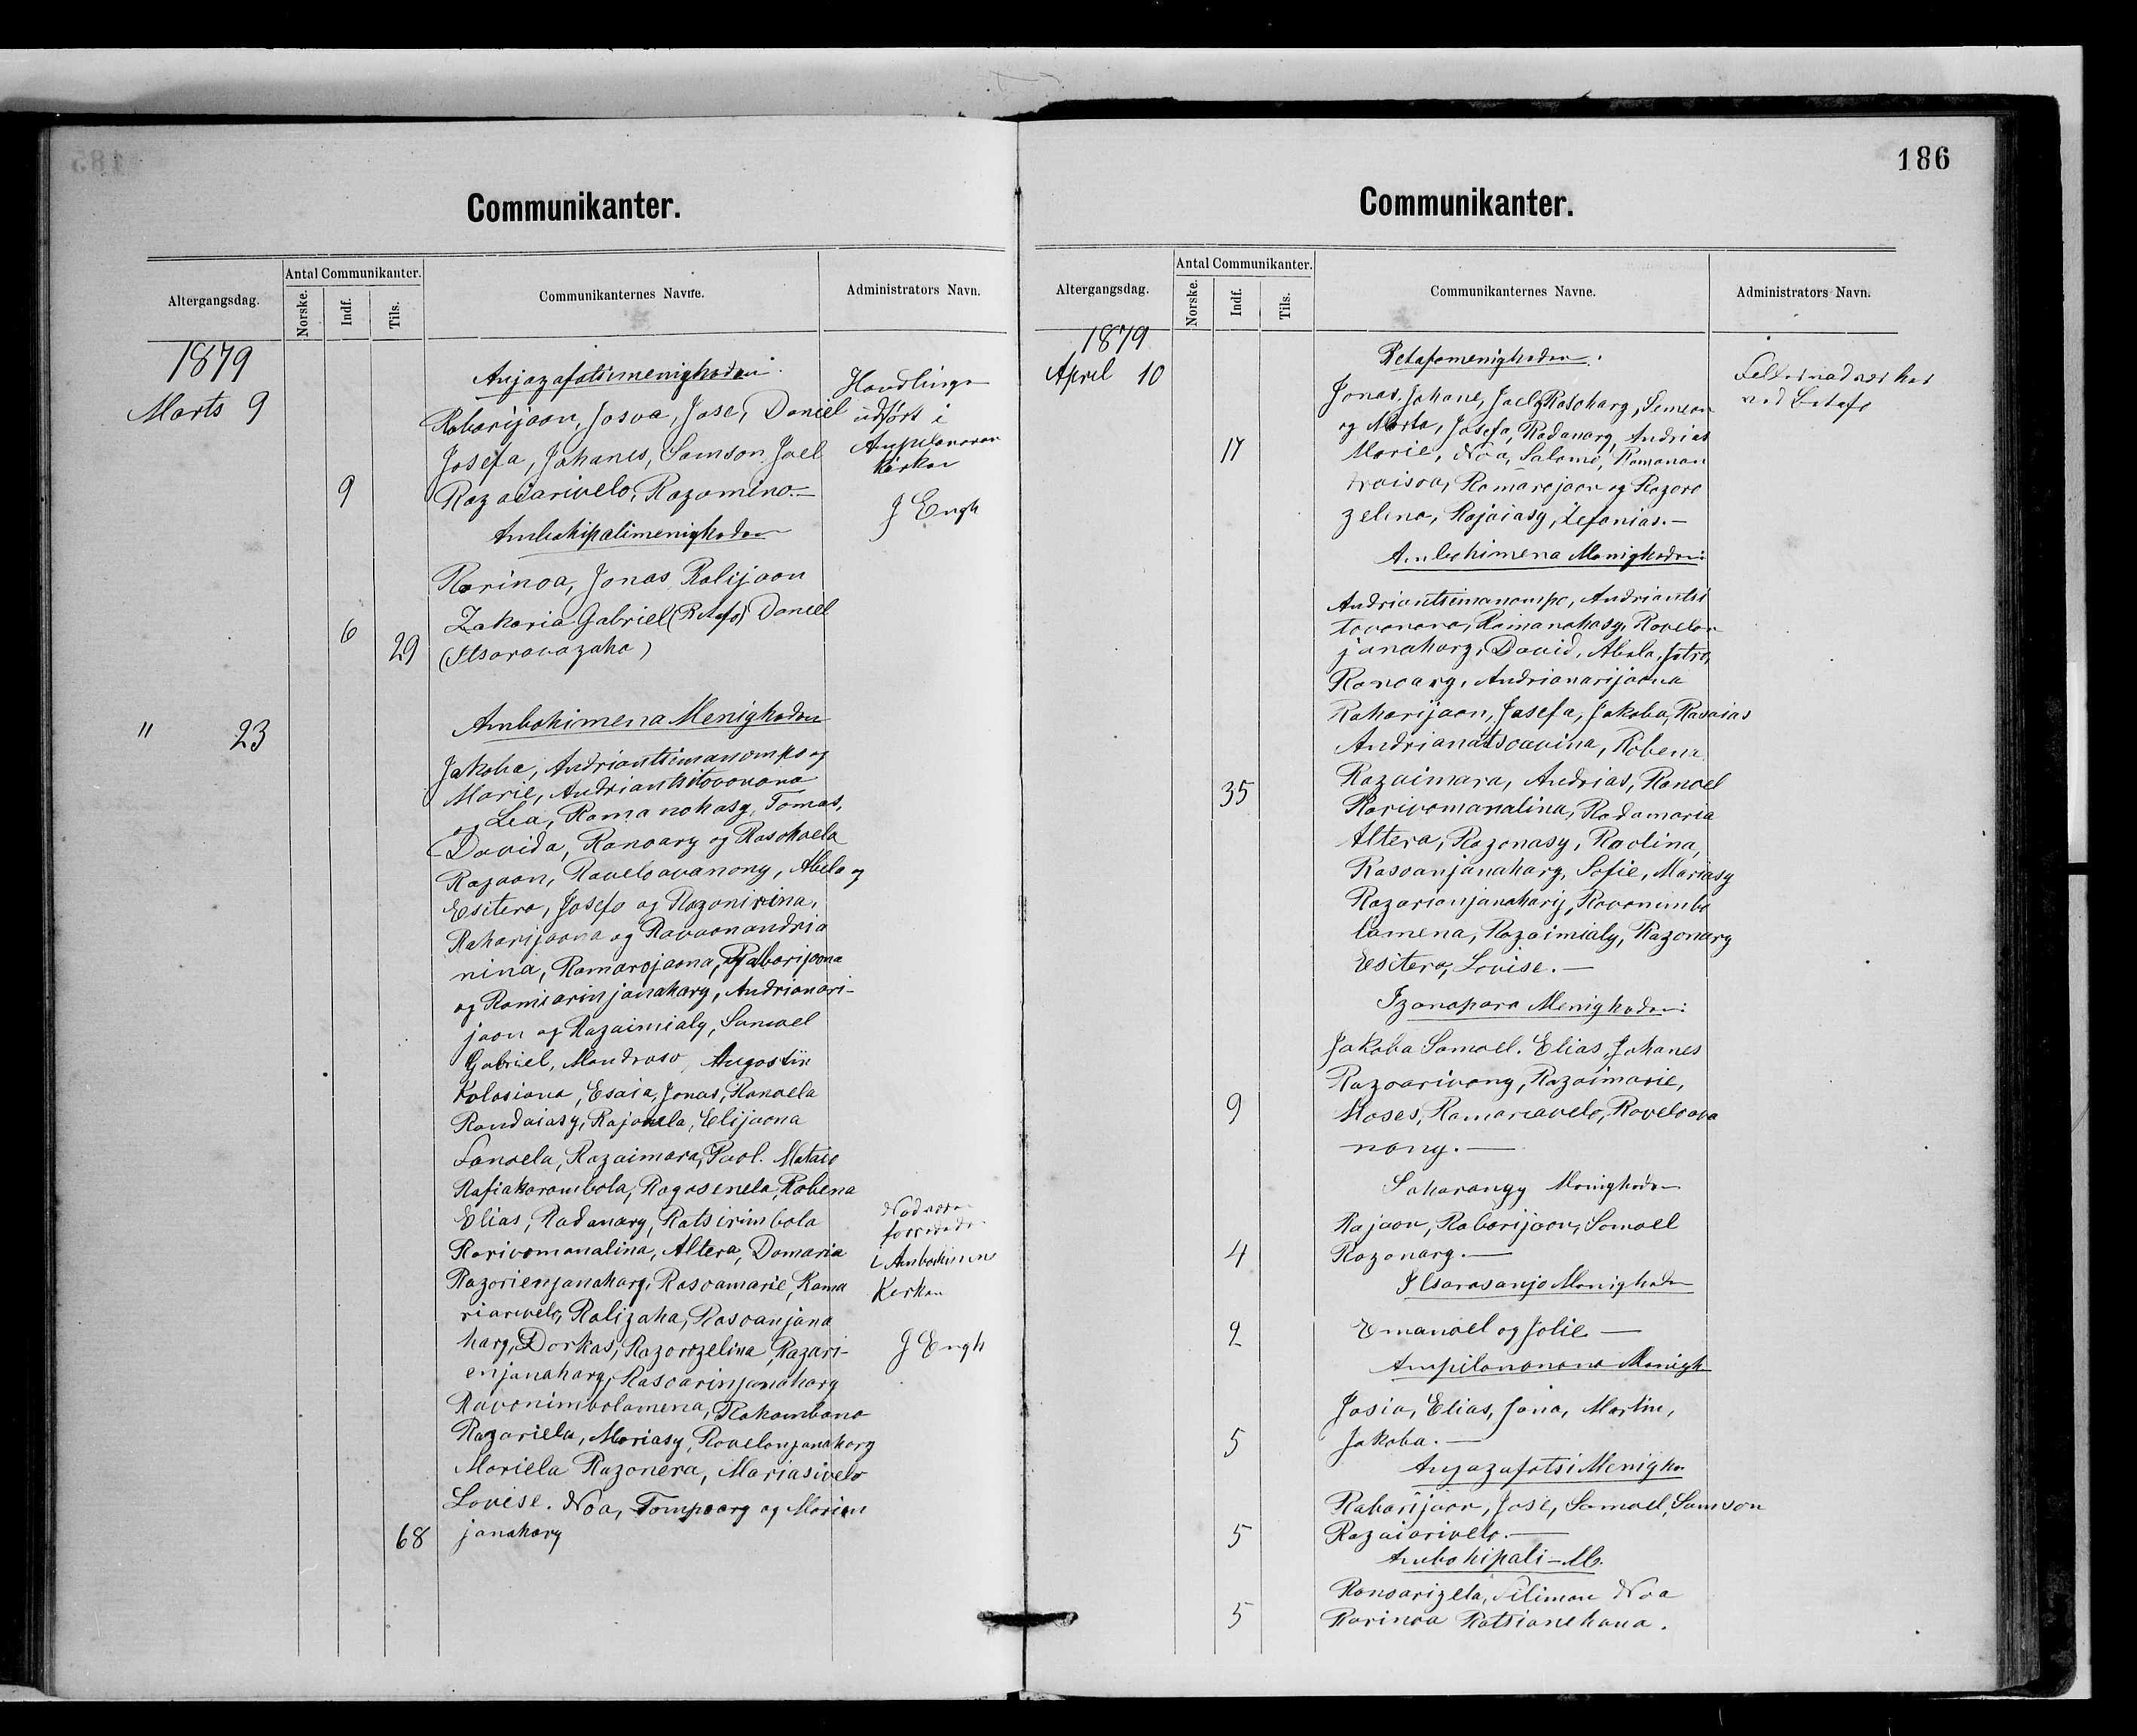 Communikanter.
Altergangsdag.
Antal Communikanter.
Norske.
Indf.
Tils.
Communikanternes Navne.
Administrators Navn.
1879
Marts 9
Anjazafotsimenigheden
Rabarijaon, Josva, Jose, Daniel
Josefa, Johanes, Samson Joel
9
Razaiarivelo, Razamino.—
Handlingen
udført i
Ampilanonan
Kirken
J Engh
Ambohipolimenigheden
Rarinoa, Jonas Ralijaon
6
Zakaria Gabriel (Betafo) Daniel
29
(Itsaravazaha)
" 23
Ambohimena Menigheden
Jakoba, Andriantsimanompo og
Marie, Andriantsitovonana
og Lea, Ramanohasy, Tomas,
Davida, Ranoary og Rasohaela
Rajaon, Raveloavanony, Abela og
Esitera, Josefa og Razanirina,
Raharijaona og Ravaonandria
nina, Ramarojaona, Rabarijaona
og Ramiarinjanahary, Andrianari-
jaon og Razaimialy, Samoel
Gabriel, Mandroso, Augostin
Kolosiana, Esaia, Jonas, Ranoela
Randaiasy, Rajonela, Elijaona
Fanoela, Razaimara, Paol. Mataio
Rafiakarambola, Ragosenela, Robena
Elias, Radanary, Ratsirimbola
Rarivomanalina, Altera, Damaria
Razorienjanahary, Rasoamarie, Rama
riarivelo, Ralizaha, Rasoanjana
hary, Dorkas, Razorozelina, Razari-
enjanahary, Rasoarinjanahary
Ravonimbolamena, Rakambana
Razariela, Mariasy, Ravelonjanahary
Mariela Razonera, Mariasivelo
Lovise. Noa, Tompoary og Marian
68
janahary
i Ambohimena
Kirken
J Engh
186
Communikanter.
Altergangsdag.
Antal Communikanter.
Norske.
Indf.
Tils.
Communikanternes Navne.
Administrators Navn.
1879
April 10
Betafomenigheden.
Jonas, Johane, Joel, Rasohary, Simeon
og Marta, Josefa, Radanary, Andrias
17
Marie, Noa, Salome, Ramanan
traisoa, Ramarojaon og Razoro
zelina, Rajaiasy, Zefanias.—
ved Betafo
Ambohimena Menigheden:
Andriantsimanompo, Andriantsi
tovonana, Ramanohasy, Ravelon
janahary, David, Abela, Jotro,
Ranoary, Andrianarijaona
Raharijaon, Josefa, Jakoba, Rasaias
Andrianatsoavina, Robena
35
Razaimara, Andrias, Ranoel
Rarivomanalina, Radamaria
Altera, Razonasy, Raolina,
Rasoanjanahary, Sofie, Mariasy
Razarianjanahary, Ravonimbo
lamena, Razaimialy, Razonary
Esitera, Lovise.—
Izanapara Menigheden:
Jakoba Samoel. Elias, Johanes
Razoarivony, Razaimarie,
9
Moses, Ramariavelo, Raveloava
nony.—
Saharangy Menigheden
Rajaon, Rabarijaon, Samoel
4
Razonary.—
Itsarasanjo Menigheden
2
Emanoel og Jolie—
Ampilanonana Menigh
Josia, Elias, Jona, Martin,
5
Jakoba.—
Anjazafotsi Menighe
Rabarijaon, Jose, Samoel, Samson
5
Razaiarivelo.—
Ambohipoli-M.
Ranoarizela, Filimon Noa
5
Rarinoa Ratsianehana.